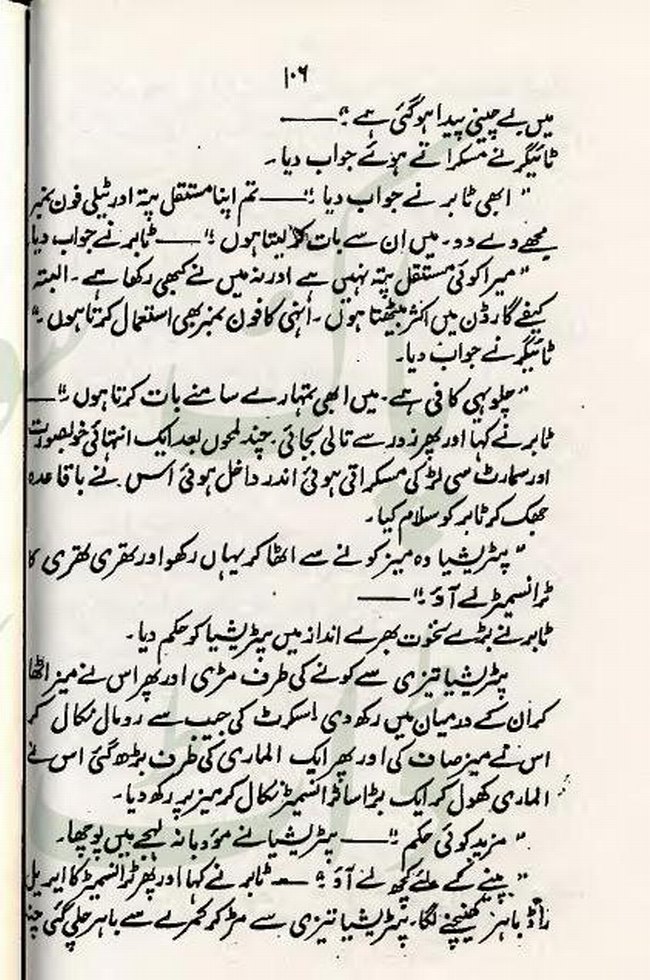 ۱۰۶
میں بے چینی پیدا ہو گئی ہے :"ـــــــ
ٹائیگر نے مسکراتے ہوئے جواب دیا۔
" ابھی ٹابر نے جواب دیا :"ـــــــ تم اپنا مستقل پتہ اور ٹیلی فون نمبر
مجھے دے دو۔ میں ان سے بات کر لیتا ہوں :"ـــــــ ٹابر نے جواب دیا
" میرا کوئی مستقل پتہ نہیں ہے اور نہ میں نے کبھی رکھا ہے۔ البتہ
کیفے گارڈن میں اکثر بیٹھتا ہوں۔ انہی کا فون نمبر بھی استعمال کرتا ہوں :"
ٹائیگر نے جواب دیا۔
" چلو یہی کافی ہے۔ میں ابھی تمہارے سامنے بات کرتا ہوں :"ـــــــ
ٹابر نے کہا اور پھر زور سے تالی بجائی۔ چند لمحوں بعد ایک انتہائی خوبصورت
اور سمارٹ سی لڑکی مسکراتی ہوئی اندر داخل ہوئی اس نے باقاعدہ
جھک کر ٹابر کو سلام کیا۔
" پٹریشیا وہ میز کونے سے اٹھا کر یہاں رکھو اور تھری تھری کا
ٹرانسمیٹر لے آؤ :"ـــــــ
ٹابر نے بڑے نخوت بھرے انداز میں پٹریشیا کو حکم دیا۔
پٹریشیا تیزی سے کونے کی طرف مڑی اور پھر اس نے میز اٹھا
کر ان کے درمیان میں رکھ دی اسکرٹ کی جیب سے رومال نکال کر
اس نے میز صاف کی اور پھر ایک الماری کی طرف بڑھ گئی اس نے
الماری کھول کر ایک بڑا سا ٹرانسمیٹر نکال کر میز پر رکھ دیا۔
" مزید کوئی حکم :"ـــــــ پٹریشیا نے مؤدبانہ لہجے میں پوچھا۔
" پینے کے لئے کچھ لے آؤ :"ـــــــ ٹابر نے کہا اور پھر ٹرانسمیٹر کا ایریل
راڈ باہر کھینچنے لگا۔ پٹریشیا تیزی سے مڑ کر کمرے سے باہر چلی گئی چند